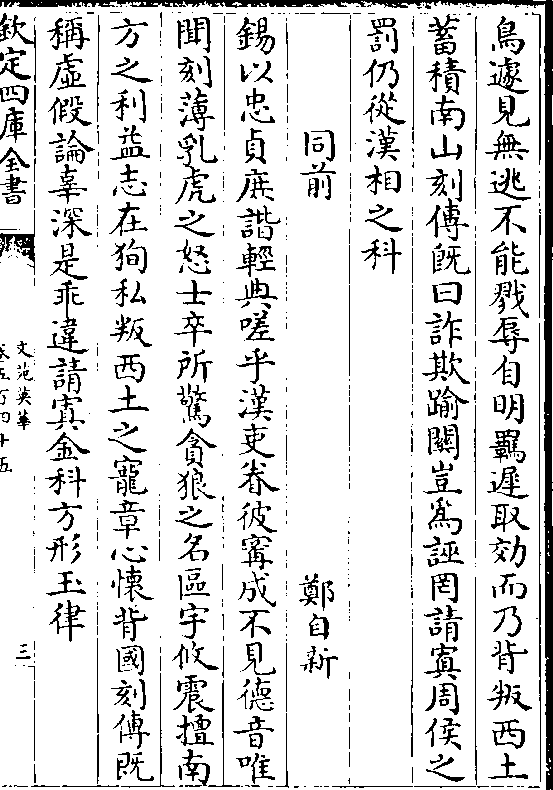 鳥遽見無逃不能戮辱自明羈遲取効而乃背叛西土
蓄積南山刻傳旣曰詐欺踰關豈爲誣罔請寘周侯之
罰仍從漢相之科
同前 鄭自新
錫以忠貞庶諧輕典嗟乎漢吏眷彼寗成不見德音唯
聞刻薄乳虎之怒士卒所驚貪狼之名區宇攸震擅南
方之利益志在狥私叛西土之寵章心懷背國刻傳旣
稱虛假論辜深是乖違請寘金科方形玉律
欽定四庫全書
文苑英華
卷五百四十五
三